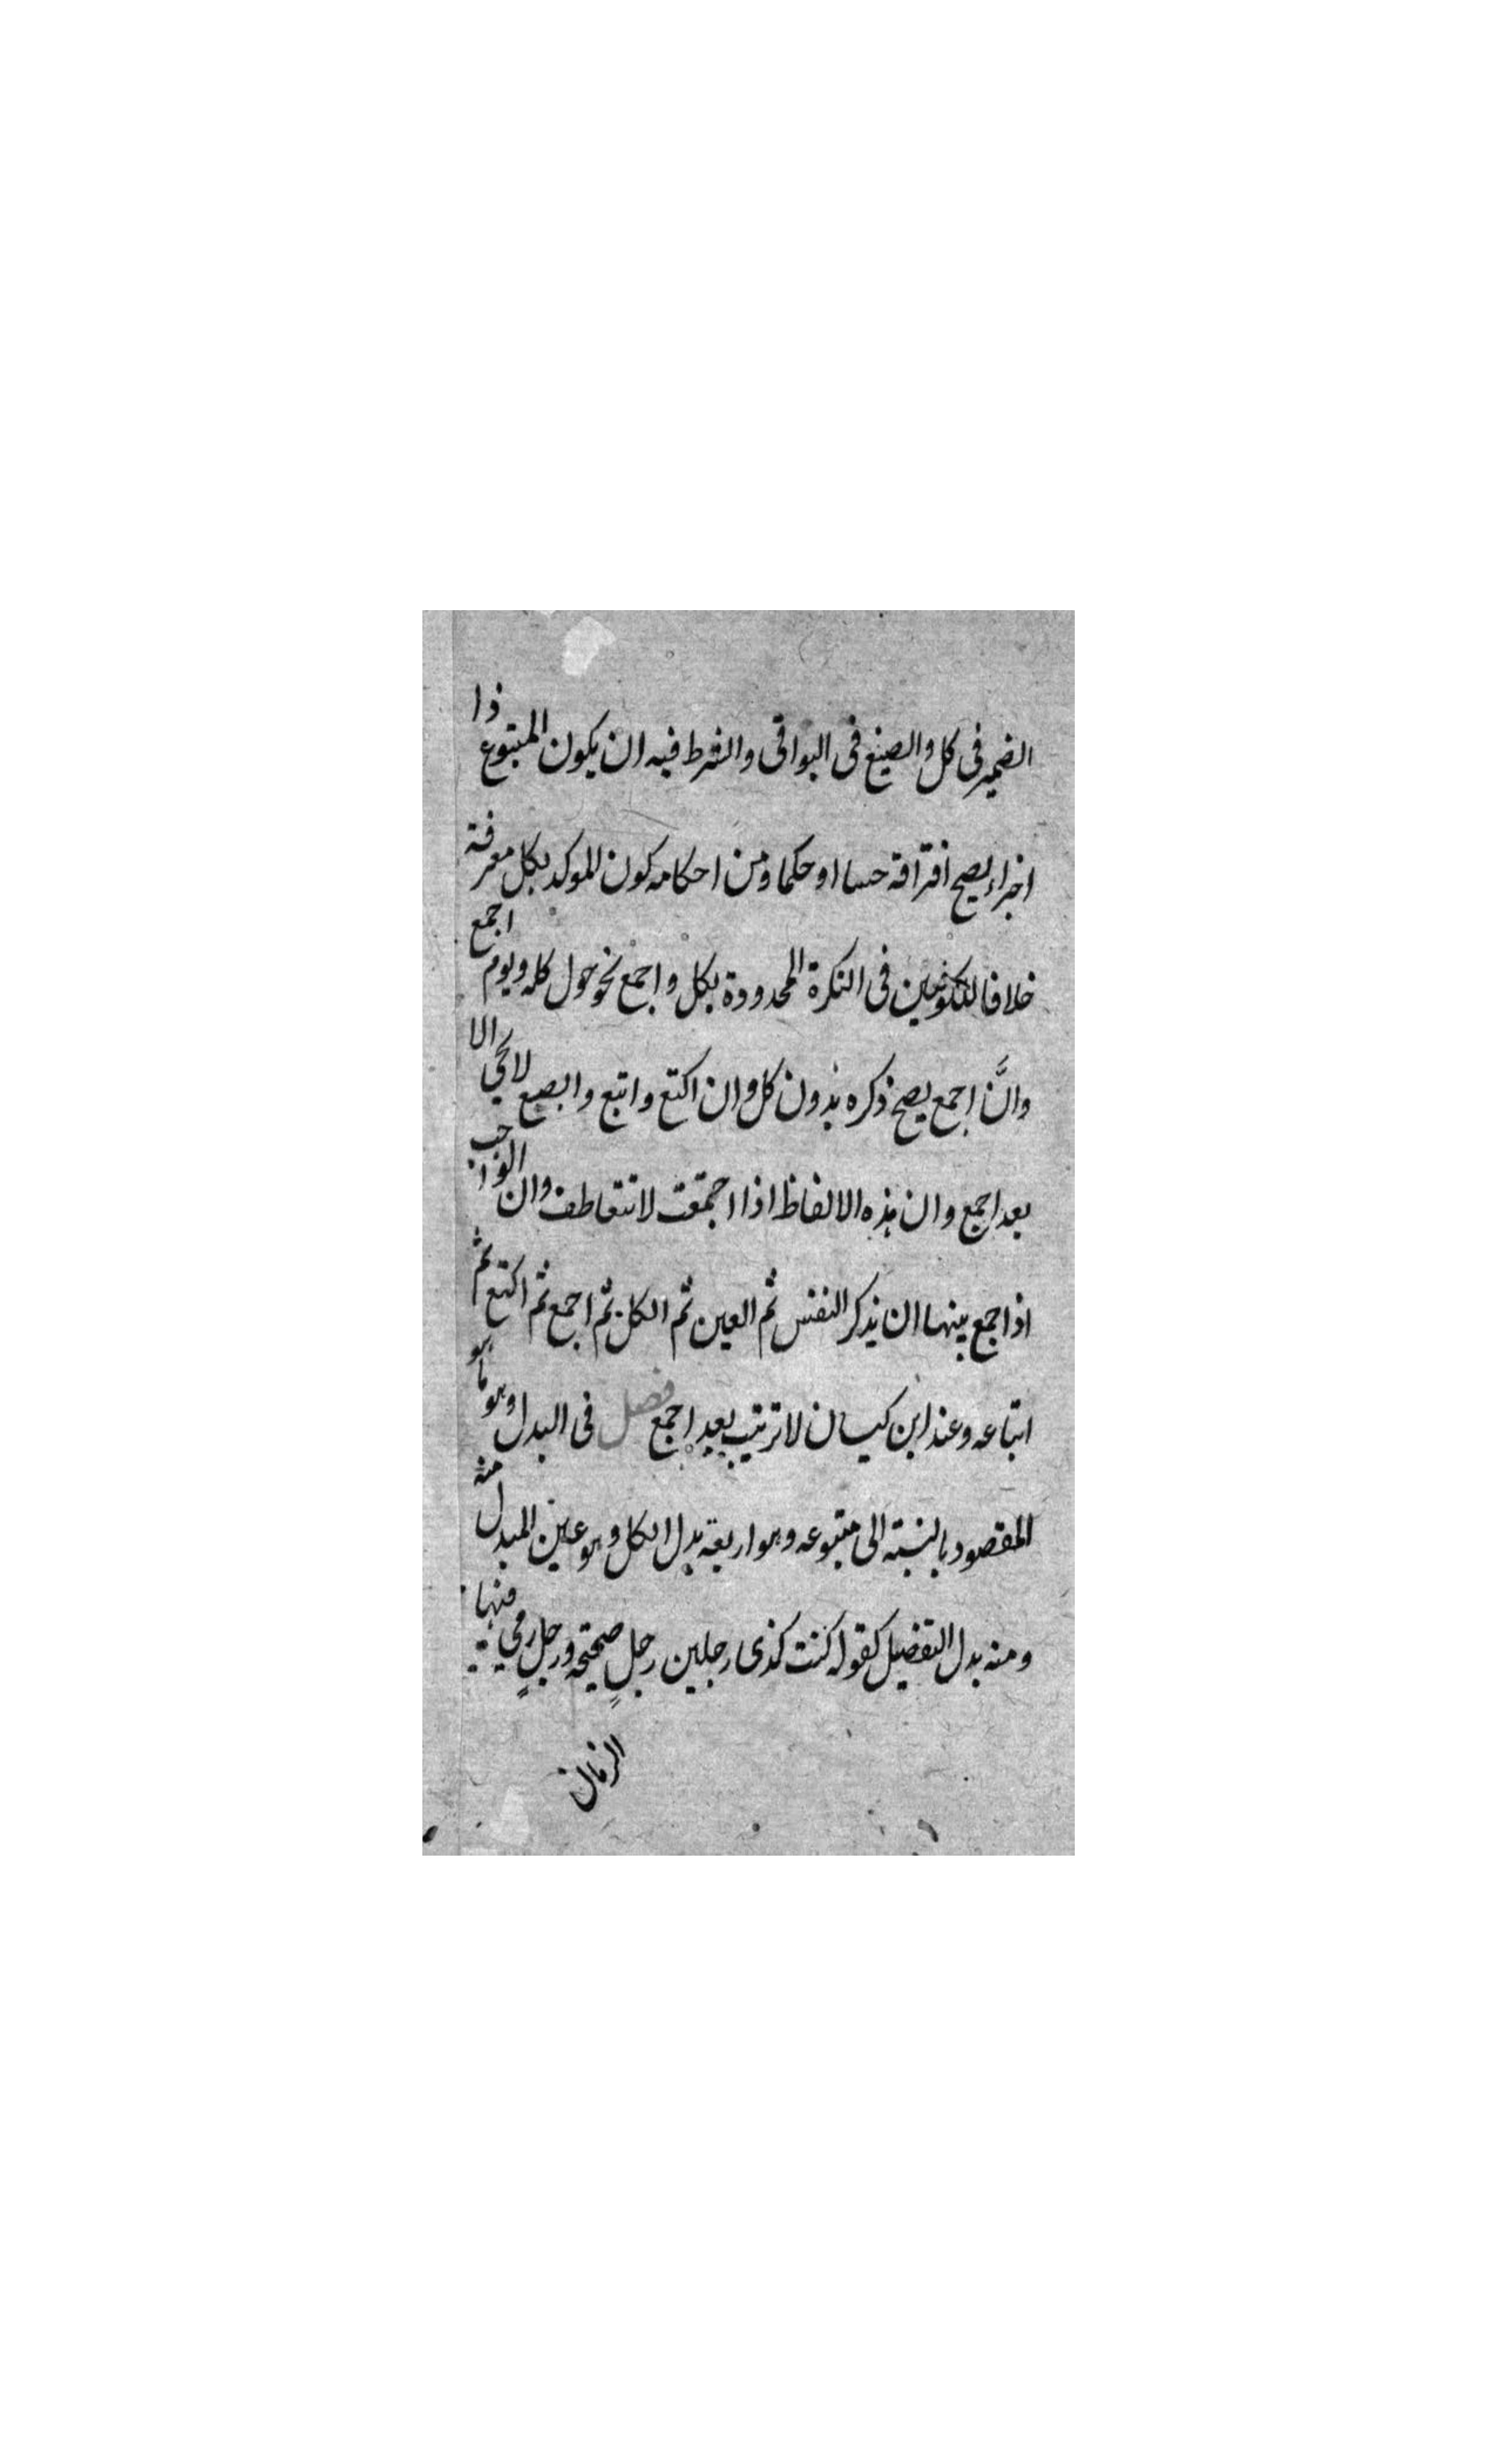 الضمير فى كل والصيغ فى البواقى والشرط فيه ان يكون المتبوع ذا
اجزاء يصح افتراقه حسا او حكما ومن احكامه كون الموكد بكل معرفة
خلافا للكوفيين فى النكرة المحدودة بكل واجمع نحو حول كله ويوم اجمع
وانَّ اجمع يصح ذكره بدون كل وان اكتع واتبع وابصع لا تجى الا
بعد اجمع وان هذه الالفاظ اذا اجتمعت لا تتعاطف وان الواجب
اذا جمع بينها ان يذكر النفس ثم العين ثم الكل ثم اجمع ثم اكتع ثم
اتباعه وعند ابن كيسان لا ترتيب بعد اجمع فصل فى البدل وهو ما هو
المقصود بالنسبة الى متبوعه وهو اربعة بدل الكل وهو عين المبدل منه
ومنه بدل التفضيل كقوله كنت كذى رجلين رجلٍ صحيحة ورجلٍ رمى فيها
الزمان